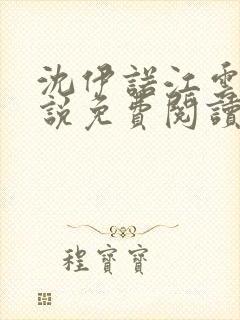 沈伊諾江雲
說免費閱讀
程寶寶